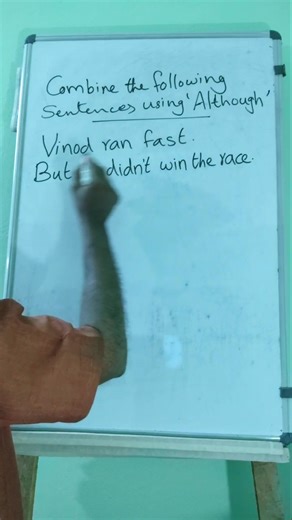 Combine the following
Sentences using 'Although'
Vinod ran fast.
But didn't win the race.